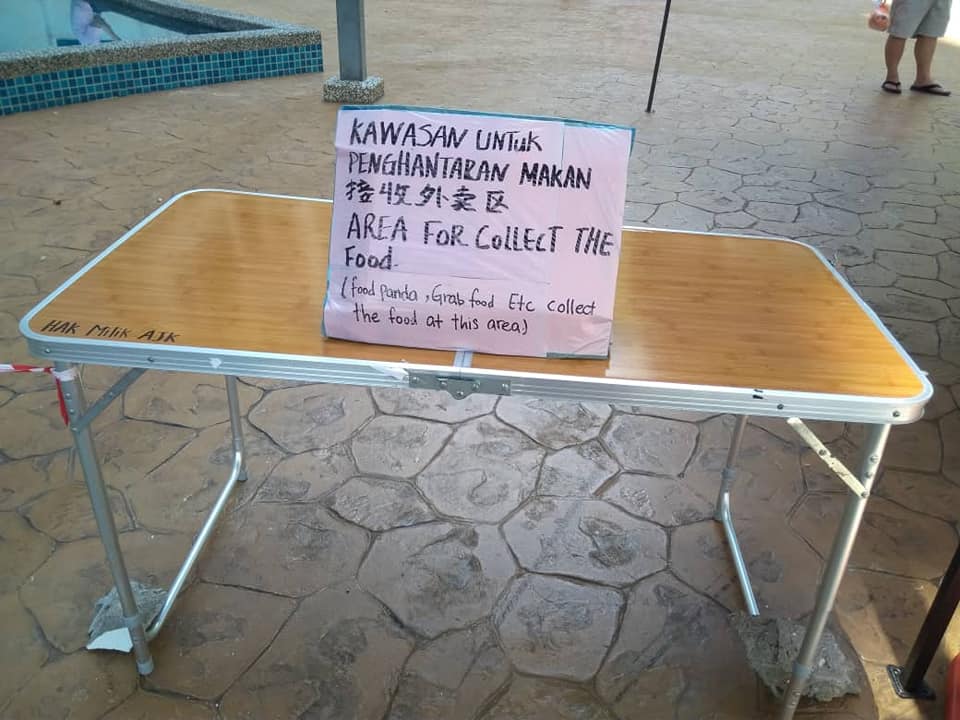 KAWASAN UNTUK
PENGHANTARAN MAKAN
接收外卖区
AREA FOR COLLECT THE
Food.
(food panda, Grab food Etc collect
the food at this area)
HAK Milik AJK